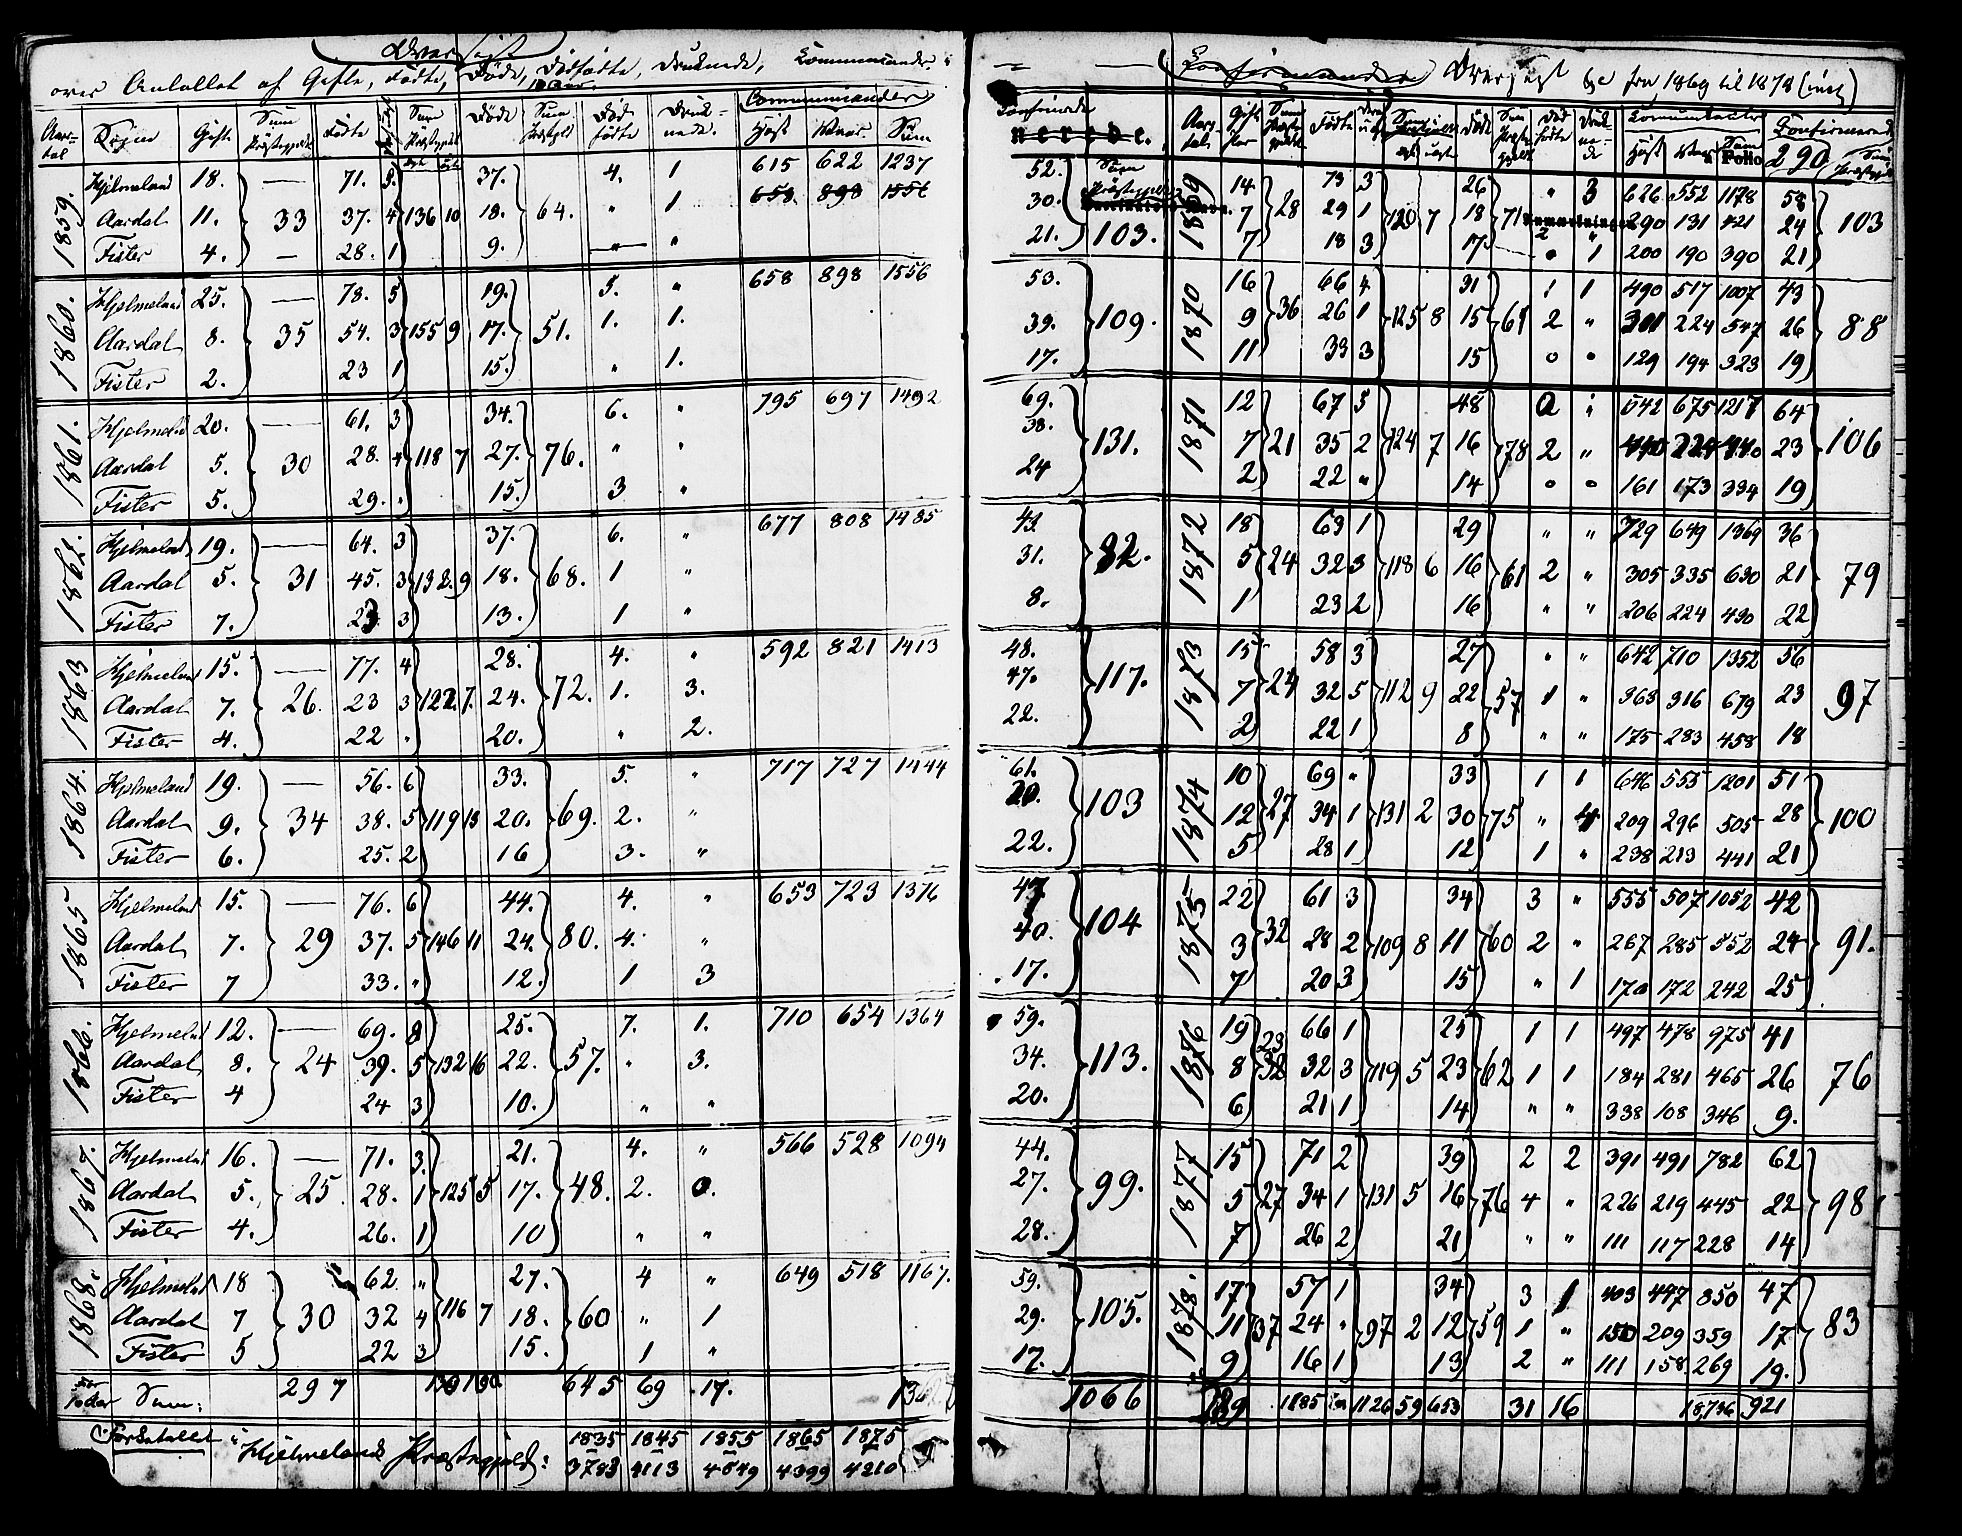 Oversigt
over Antallet af Gifte, Födte, Döde, Dödfödte, Druknede, Communicander i
Aars-tal Sogn Gifte Sum Præstegjeldet Födte Sum Præstegjeldet Döde Sum Præstgjld Död födte Druk-nede. Communicander Höst Vaar. Sum
1859. Hjelmeland 18. — 71. 5. 37. 4. 1 615 622 1237
658. 898 1556
Aardal 11. 33 37. 4 136 10 18. 64. " 1
Fister 4. — 28. 1 9. " "
1860. Hjelmeland 25. — 78. 5 19. 5. " 658 898 1556
Aardal 8. 35 54. 3 155 9 17. 51. 1. 1.
Fister 2. 23 1 15. " 1.
1861. Hjelmeld 20. — 61. 3 34. 6. " 795 697 1492
Aardal 5. 30 28. 4 118 7 27. 76. " "
Fister 5. 29. . 15. 3 "
1862. Hjelmelnd 19. — 64. 3 37. 6. " 677 808 1485
Aardal 5. 31 45. 3 132. 9 18. 68. 1 "
Fister 7. 23 3 13. 1 "
1863 Hjelmeland 15. — 77. 4 28. 4. " 592 821 1413
Aardal 7. 26. 23 3 122. 7. 24. 72. 1. 3.
Fister 4. 22 " 20. " 2.
1864. Hjelmeland 19. — 56. 6 33. 5. " 717 727 1444
Aardal 9. 34 38. 5 119 13 20. 69. 2. "
Fister 6. 25. 2 16 3. "
1865 Hjelmeland 15. — 76. 6 44. 4. " 653 723 1376
Aardal 7. 29 37. 5 146 11 24. 80. 4. "
Fister 7 33. " 12. 1 3
1866. Hjelmelnd 12. — 69. 8 25. 7. 1. 710 654 1364
Aardal 8. 24 39. 5 132 16 22. 57. " 3.
Fister 4 24 3 10. " "
1867. Hjelmelnd 16. — 71. 3. 21. 4. " 566 528 1094
Aardal 5. 25. 28. 1 125 5 17. 48. 2. 0.
Fister 4. 26. 1 10 " "
1868. Hjelmeland 18 62 " 27. 4 " 649 518 1167.
Aardal 7 30 32 4 116 7 18. 60 " 1
Fister 5 22 3 15. 1 "
Sum: 297 645 69 17.
Folketallet i Hjelmelands Præstegjeld: 1835 1845 1855 1865 1875
3783 4113 4649 4399 4210
Confirmander Oversigt fra 1869 til 1878 (incl)
Confirmede Sum Præstegjeldet Aars-tal Gifte Par Sum Præste-gjeldet Födte Döde Död födte Druk-ne-de Communicanter Höst Vaar Sum Folio Confirmerede 290
nerede.
52. 1869 14. 73 3 26 " 3 626 552 1178 58
30. 7 28 29 1 120 7 18 71 2 " 290 131 421 24 103
21. 103. 7 18 3 17 " 1 200 190 390 21
53. 1870 16 66 4 31 1 1 490 517 1007 43
39. 109. 9 36 26 1 125 8 15 61 2 " 224 547 26 88
17. 11 33 3 15 0 0 129 194 323 19
69. 1871 12 67 5 48 0 542 675 1217 64
38. 131. 7 21 35 2 124 7 16 78 2 " 23 106
24 2 22 " 14 0 0 161 173 334 19
43. 1872 18 63 1 29 " " 729 649 1369 36
31. 82. 5 24 32 3 118 6 16 61 2 " 305 335 630 21 79
8. 1 23 2 16 " " 206 224 430 22
48. 1873 15 58 3 27 " " 642 710 1352 56
47. 117. 7 24 32 5 112 9 22 57 1 " 363 316 679 23 97
22. 2 22 1 8 " " 175 283 458 18
61. 1874 10 69 " 33 1 1 646 555 1201 51
20. 103 12 27 34 1 131 2 30 75 " 4 209 296 505 28 100
22. 5 28 1 12 1 " 238 213 441 21
47 1875 22 61 3 34 3 " 555 507 1052 42
40. 104 3 32 28 2 109 8 11 60 2 " 267 285 552 24 91.
17. 7 20 3 15 " 1 170 172 242 25
59. 1876 19 66 1 25 1 1 497 478 975 41
34. 113. 8 23 32 32 3 119 5 23 62 1 1 184 281 465 26 76
20. 6 21 1 14 " " 338 108 346 9.
44. 1877 15 71 2 39 2 2 391 491 782 62
27. 99. 5 27 34 1 131 5 16 76 4 " 226 219 445 22 98
28. 7 26 2 21 " " 111 117 228 14
59. 1878. 17 57 1 34 3 1 403 447 850 47
29. 105. 11 37 24 " 97 2 12 59 1 " 150 209 359 17 83
17. 9 16 1 13 2 " 111 158 269 19.
1066 289 1185 1126 59 653 31 16 18,736 921